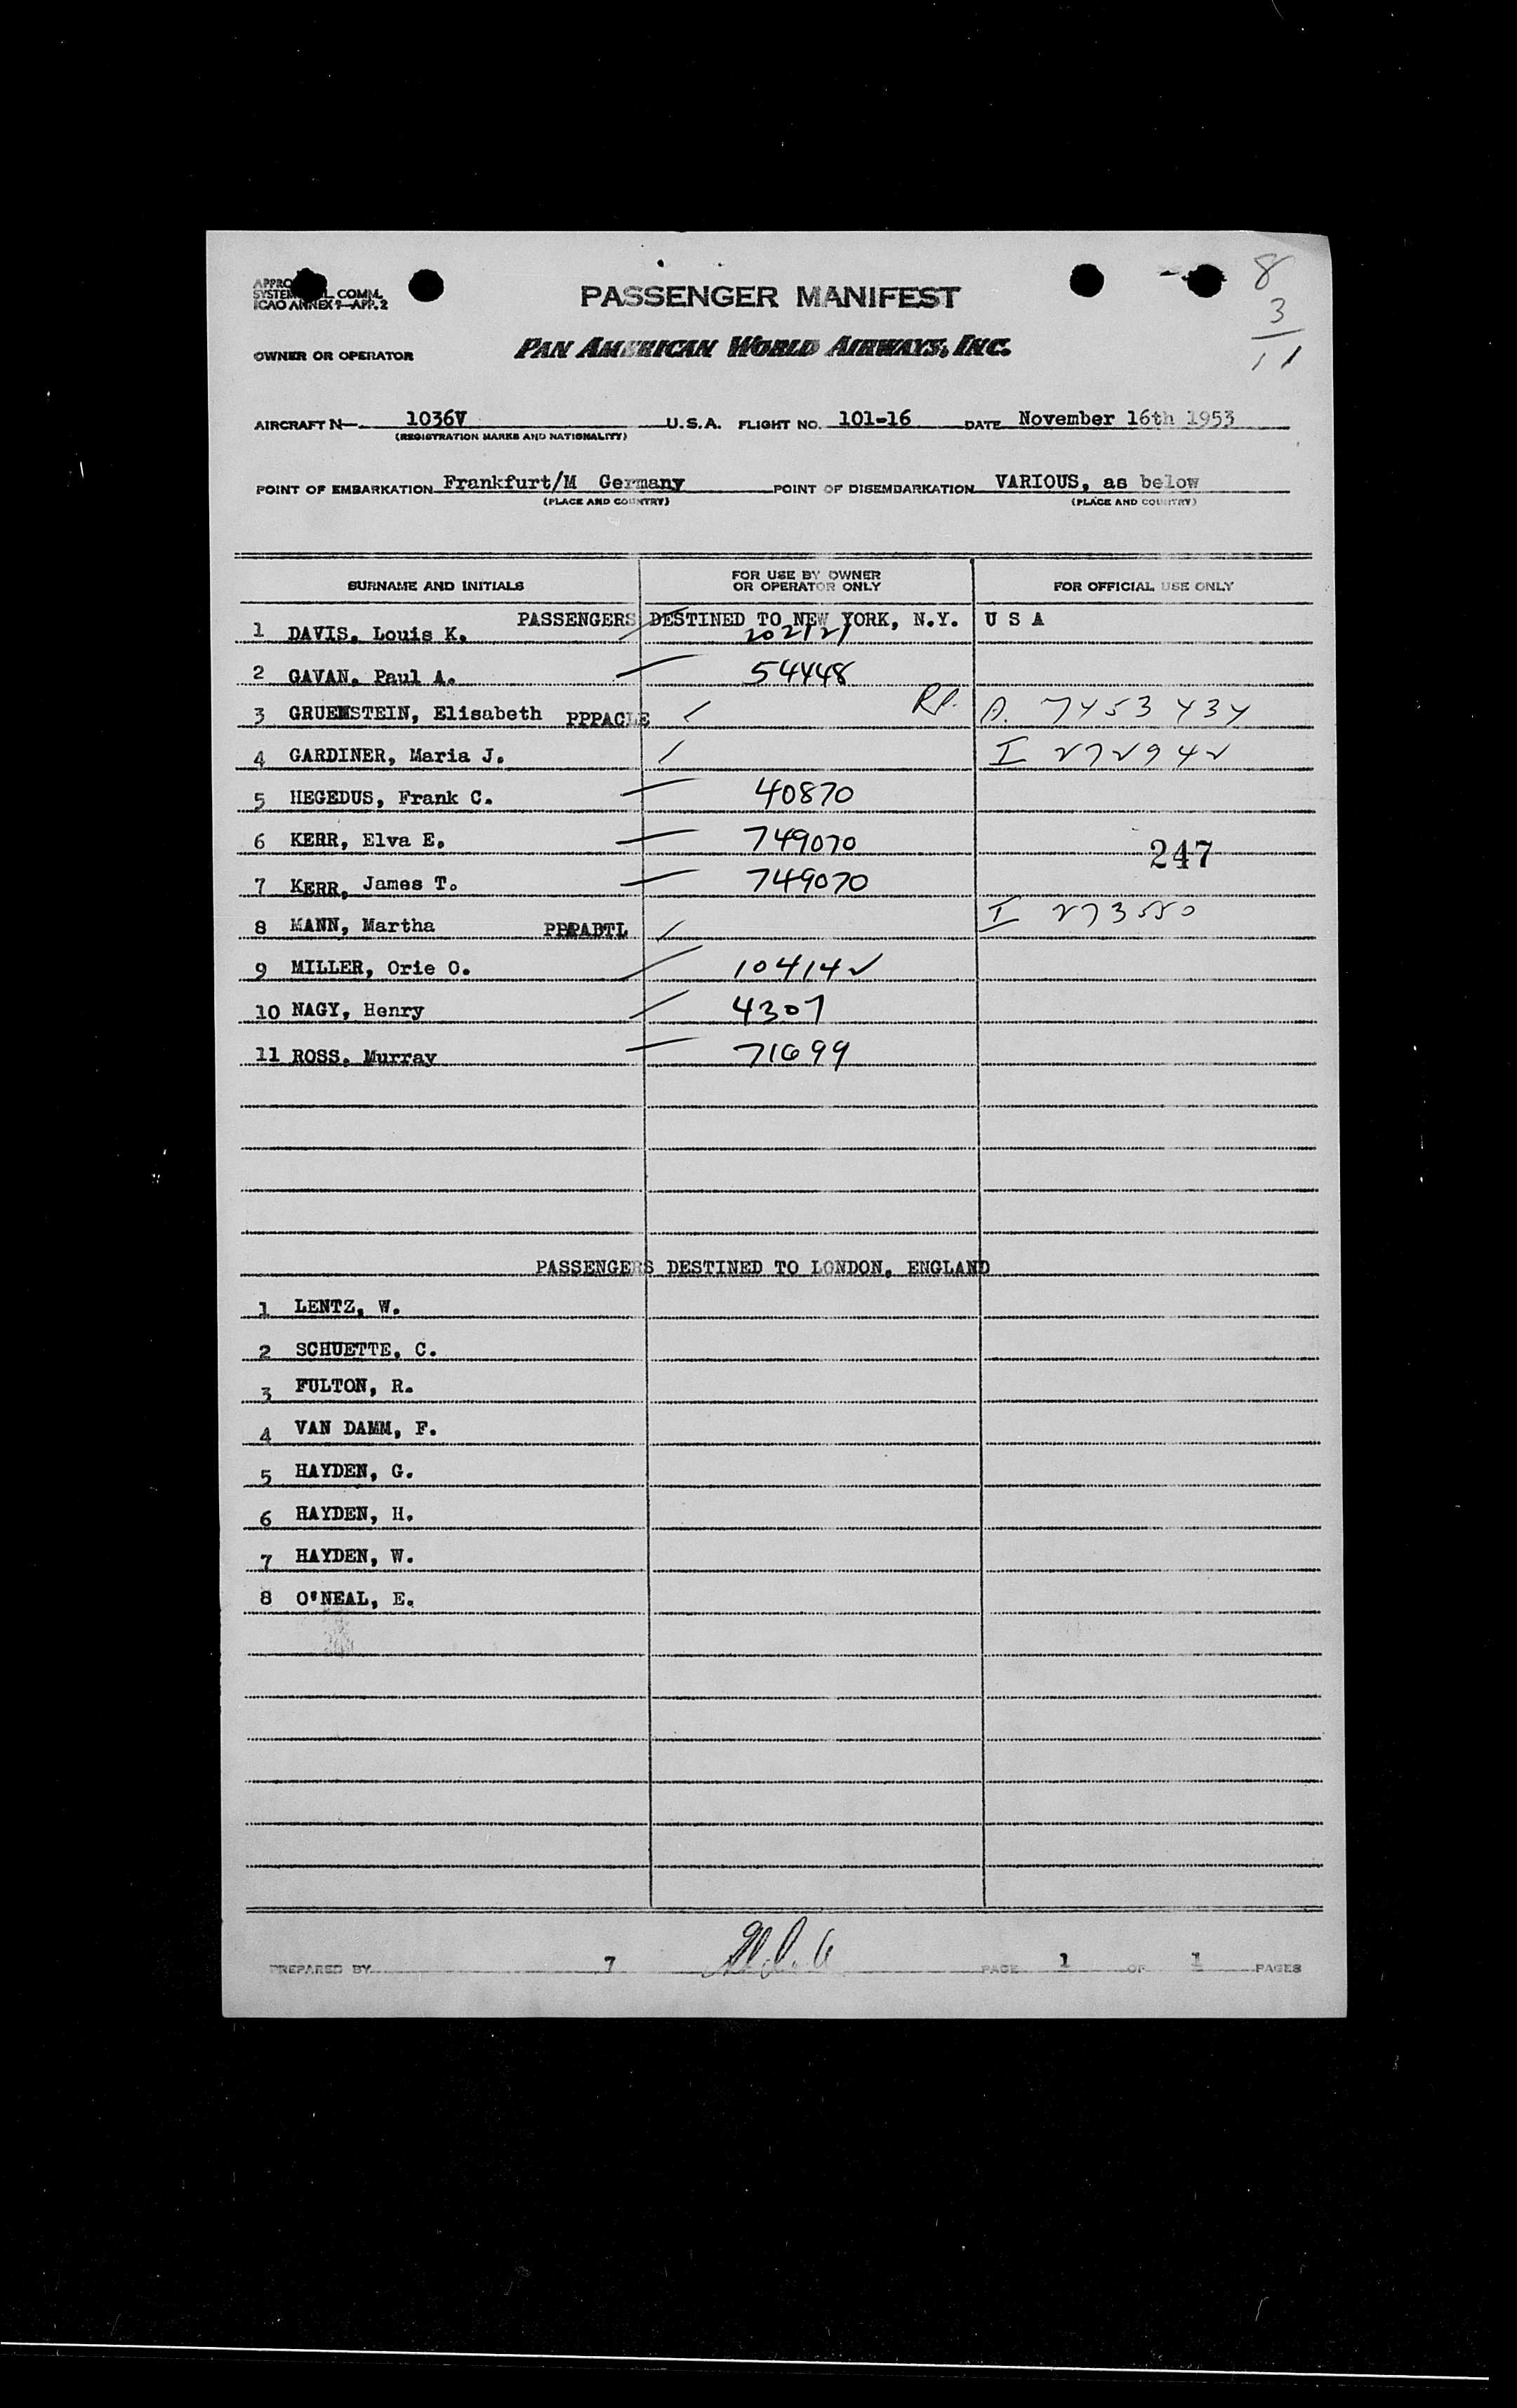 8
3
11
SYSTEM COMM.
ICAO ANNEX 9—APP. 2
PASSENGER MANIFEST
OWNER OR OPERATOR PAN AMERICAN WORLD AIRWAYS, INC.
AIRCRAFT N— 1036V U.S.A. FLIGHT NO. 101-16 DATE November 16th 1953
(REGISTRATION MARKS AND NATIONALITY)
POINT OF EMBARKATION Frankfurt/M Germany POINT OF DISEMBARKATION VARIOUS, as below
(PLACE AND COUNTRY) (PLACE AND COUNTRY)
SURNAME AND INITIALS FOR USE BY OWNER OR OPERATOR ONLY FOR OFFICIAL USE ONLY
PASSENGERS DESTINED TO NEW YORK, N.Y. U S A
1 DAVIS, Louis K. 202121
2 GAVAN, Paul A. 54448
3 GRUENSTEIN, Elisabeth PPPACLE R.P. A. 7453434
4 GARDINER, Maria J. I 272942
5 HEGEDUS, Frank C. 40870
6 KERR, Elva E. 749070
247
7 KERR, James T. 749070
8 MANN, Martha PPPABTL I 273550
9 MILLER, Orie O. 104142
10 NAGY, Henry 4307
11 ROSS, Murray 71699
PASSENGERS DESTINED TO LONDON, ENGLAND
1 LENTZ, W.
2 SCHUETTE, C.
3 FULTON, R.
4 VAN DAMM, F.
5 HAYDEN, G.
6 HAYDEN, H.
7 HAYDEN, W.
8 O'NEAL, E.
PREPARED BY 7 PAGE 1 OF 1 PAGES